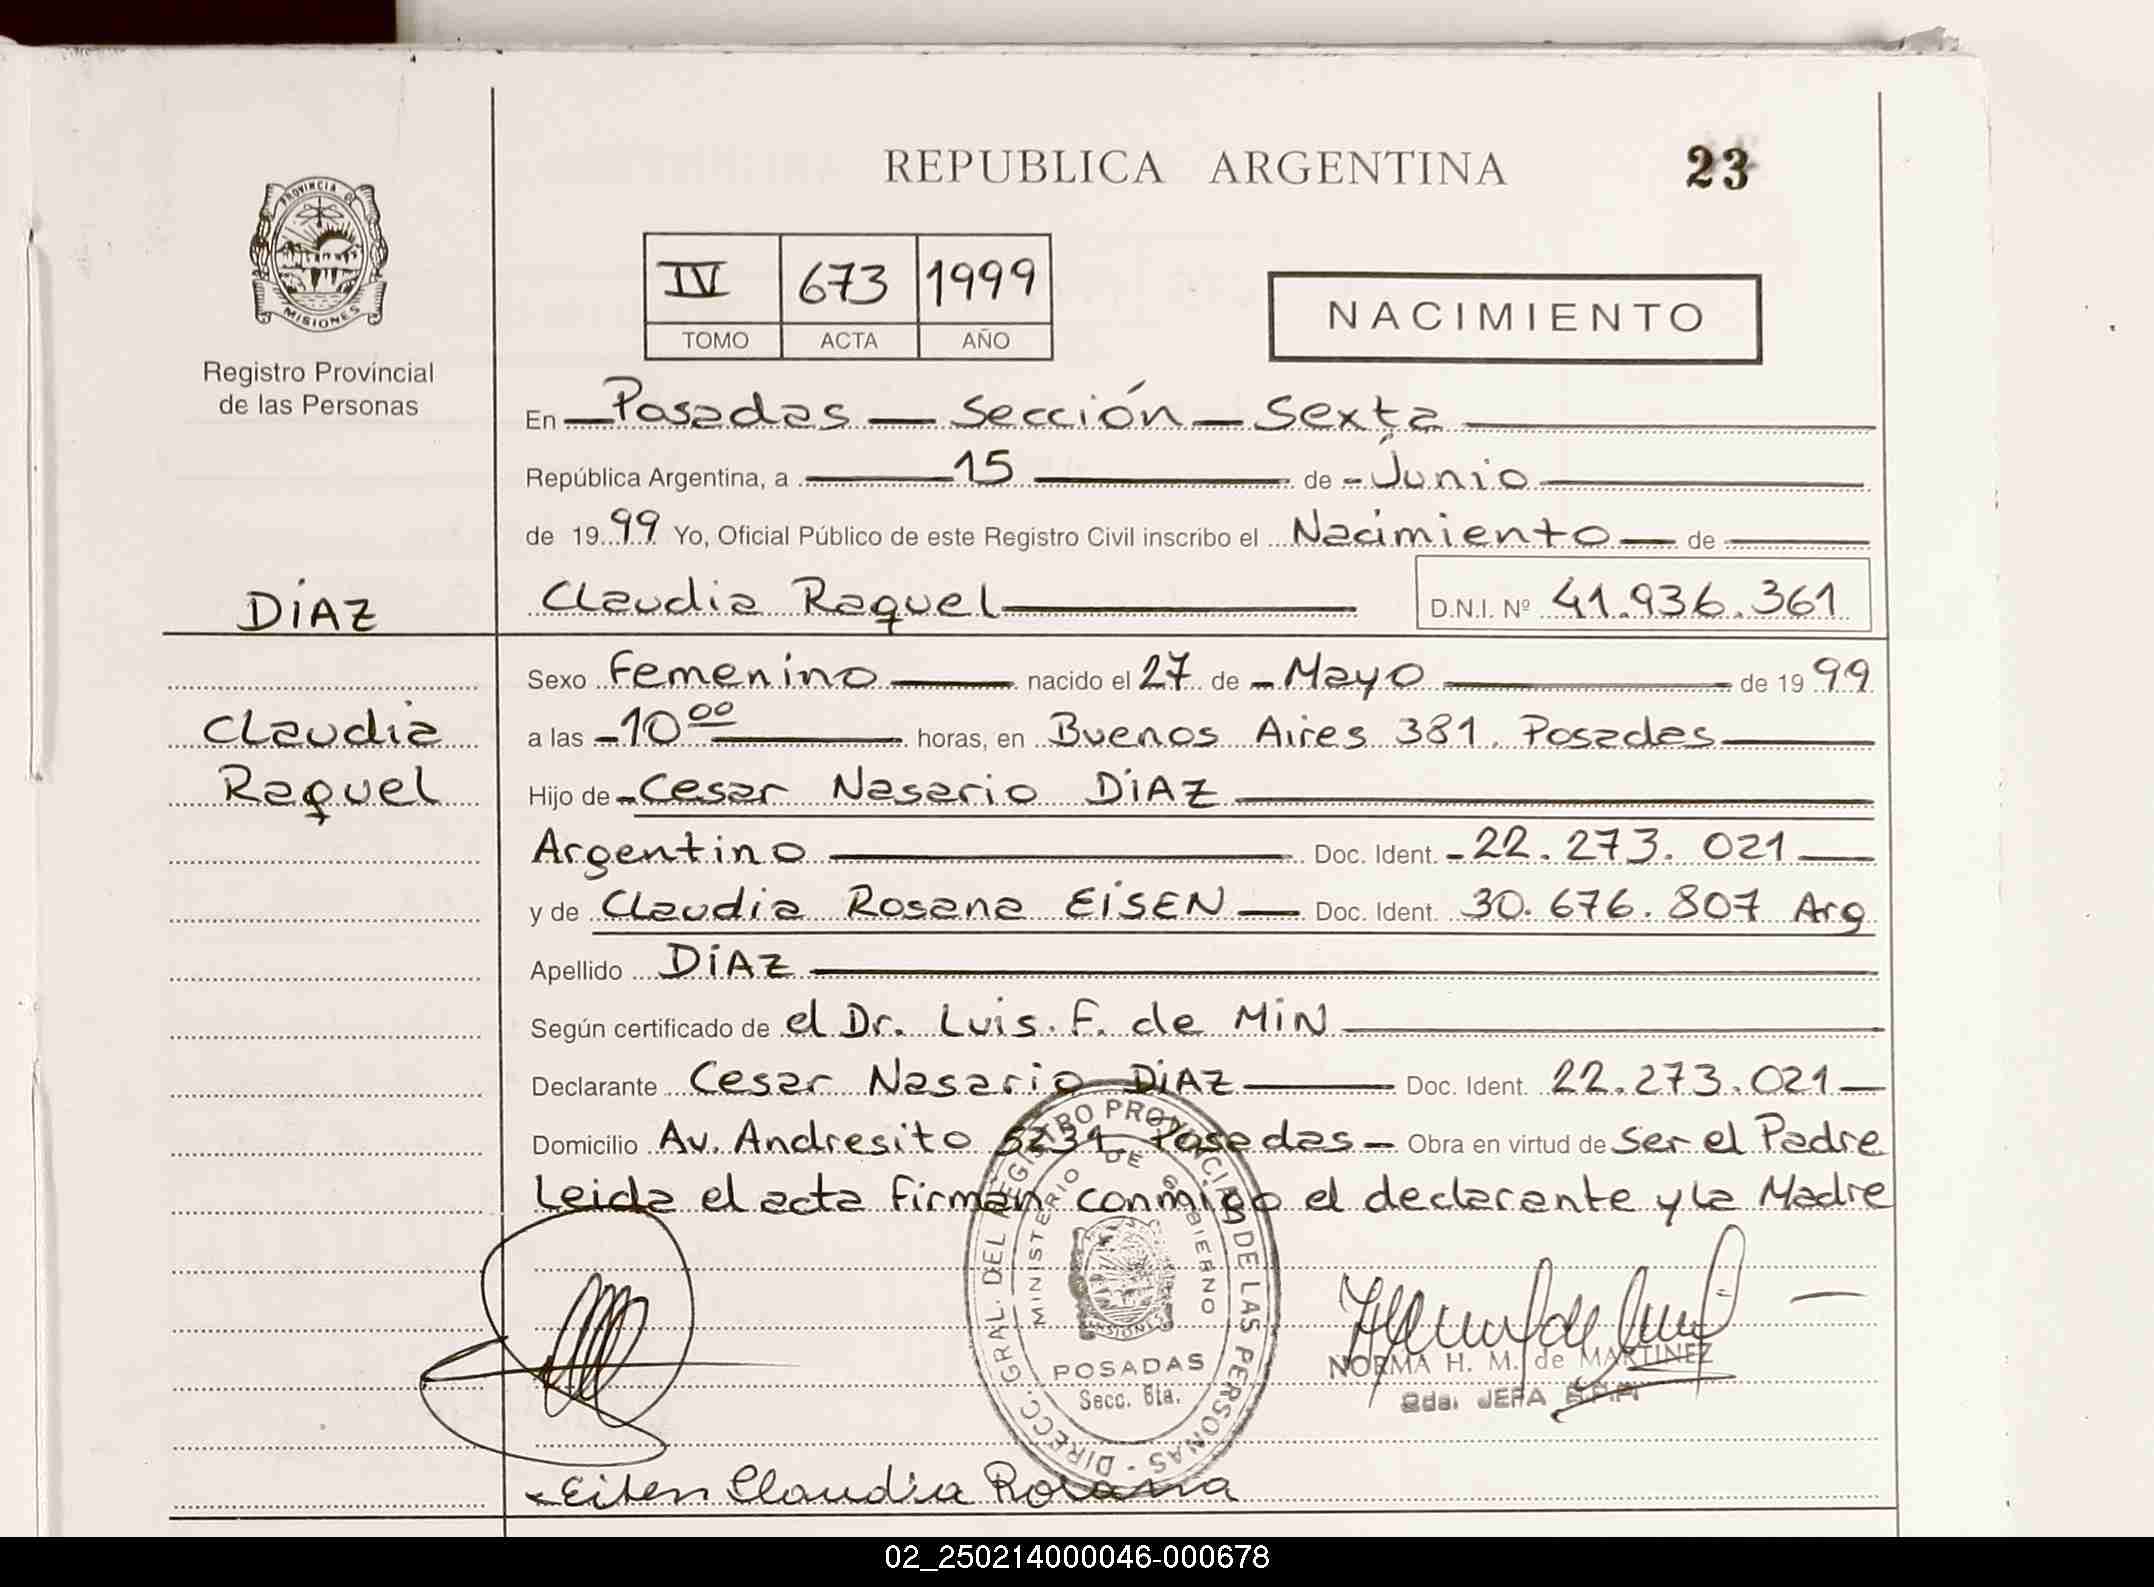 REPUBLICA ARGENTINA
23
PROVINCIA DE
MISIONES
Registro Provincial
de las Personas
IV 673 1999
TOMO ACTA AÑO
NACIMIENTO
En Posadas — Sección — Sexta
República Argentina, a 15 de Junio
de 1999 Yo, Oficial Público de este Registro Civil inscribo el Nacimiento de
DíAZ
Claudia Raquel D.N.I. Nº 41.936.361
Sexo Femenino nacido el 27 de Mayo de 1999
Claudia
a las 10 00 horas, en Buenos Aires 381. Posadas
Raquel
Hijo de Cesar Nasario DiAZ
Argentino Doc. Ident. 22.273.021
y de Claudia Rosana EiSEN Doc. Ident. 30.676.807 Arg
Apellido DiAZ
Según certificado de el Dr. Luis. F. de MiN
Declarante Cesar Nasario DiAZ Doc. Ident. 22.273.021
Domicilio Av. Andresito 5231 Posadas Obra en virtud de Ser el Padre
Leida el acta firman conmigo el declarante y la Madre
DIRECC. GRAL. DEL REGISTRO PROVINCIAL DE LAS PERSONAS
MINISTERIO DE GOBIERNO
MISIONES
POSADAS
Secc. 6ta.
NORMA H. M. de MARTINEZ
2da. JEFA
Eisen Claudia Rosana
02_250214000046-000678